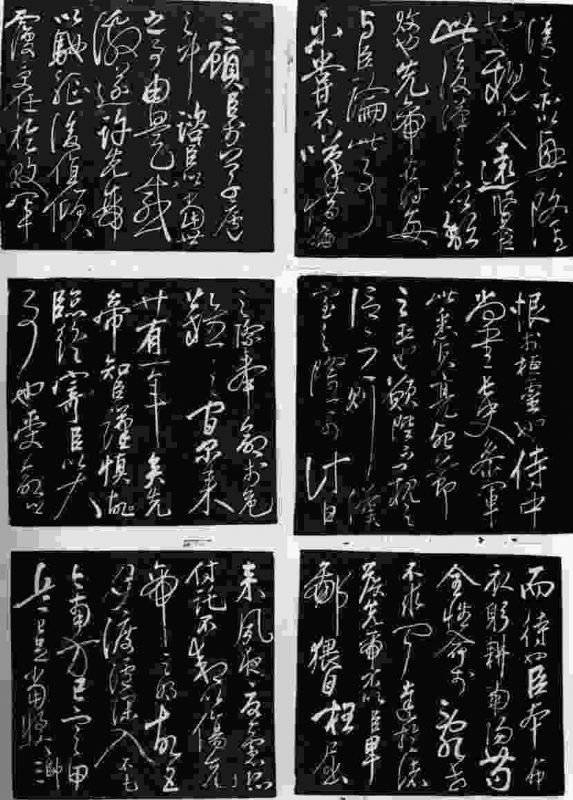 漢之所以興隆
也親小人遠賢臣
此後漢之所以傾
頹也先帝在時每
與臣論此事
未嘗不嘆息痛
恨於桓靈也侍中
尚書長史參軍
此悉貞亮死節
之臣也願陛下親之
信之則漢
室之隆可計日
而待也臣本布
衣躬耕南陽苟
全性命於亂世
不求聞達於諸
侯先帝不以臣卑
鄙猥自枉屈
三顧臣於草廬
之中諮臣以當世
之事由是感
激遂許先帝
以驅馳後值傾
覆受任於敗軍
之際奉命於危
難之間爾來
廿有一年矣先
帝知臣謹慎故
臨終寄臣以大
事也受命以
來夙夜憂慮恐
付託不效以傷先
帝之明故五
月渡瀘深入不毛
今南方已定甲
兵已足當獎帥三